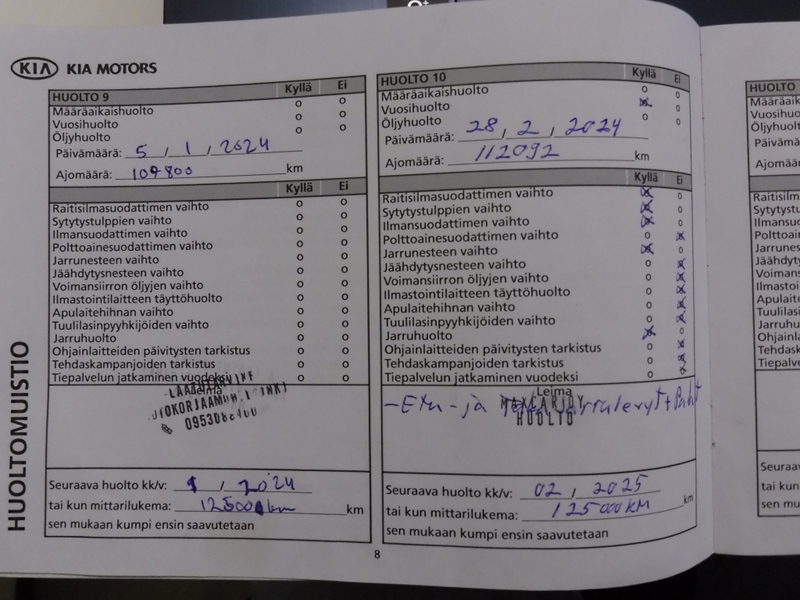 KIA KIA MOTORS
HUOLTO 9 Kyllä Ei
Määräaikaishuolto o o
Vuosihuolto o o
Öljyhuolto o o
Päivämäärä: 5 / 1 / 2024
Ajomäärä: 109800 km
Kyllä Ei
Raitisilmasuodattimen vaihto o o
Sytytystulppien vaihto o o
Ilmansuodattimen vaihto o o
Polttoainesuodattimen vaihto o o
Jarrunesteen vaihto o o
Jäähdytysnesteen vaihto o o
Voimansiirron öljyjen vaihto o o
Ilmastointilaitteen täyttöhuolto o o
Apulaitehihnan vaihto o o
Tuulilasinpyyhkijöiden vaihto o o
Jarruhuolto o o
Ohjainlaitteiden päivitysten tarkistus o o
Tehdaskampanjoiden tarkistus o o
Tiepalvelun jatkaminen vuodeksi o o
Leima
Seuraava huolto kk/v: 1 / 2024
tai kun mittarilukema: 125000 km km
sen mukaan kumpi ensin saavutetaan
HUOLTOMUISTIO
HUOLTO 10 Kyllä Ei
Määräaikaishuolto o o
Vuosihuolto x o
Öljyhuolto o o
Päivämäärä: 28 / 2 / 2024
Ajomäärä: 112092 km
Kyllä Ei
Raitisilmasuodattimen vaihto x o
Sytytystulppien vaihto x o
Ilmansuodattimen vaihto x o
Polttoainesuodattimen vaihto o x
Jarrunesteen vaihto x o
Jäähdytysnesteen vaihto o x
Voimansiirron öljyjen vaihto o x
Ilmastointilaitteen täyttöhuolto o x
Apulaitehihnan vaihto o x
Tuulilasinpyyhkijöiden vaihto o x
Jarruhuolto x o
Ohjainlaitteiden päivitysten tarkistus o x
Tehdaskampanjoiden tarkistus o x
Tiepalvelun jatkaminen vuodeksi o x
Leima
-Etu-ja
HUOLTO
Seuraava huolto kk/v: 02 / 2025
tai kun mittarilukema: 125000KM km
sen mukaan kumpi ensin saavutetaan
8
HUOLTO
Määräaik
Vuosihuol
Öljyhuolt
Päivämää
Ajomäärä
Raitisilma
Sytytystu
Ilmansuo
Polttoain
Jarrunes
Jäähdyty
Voimans
Ilmastoi
Apulait
Tuulilas
Jarruhu
Ohjain
Tehdas
Tiepalve
Seuraav
tai kun
sen mu